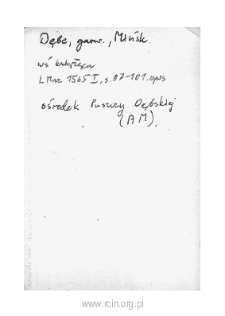 Dębe, garw., Mińsk.
wś książęca
LMaz 1565 I, s. 97-101. opis
ośrodek Puszczy Dębskiej
(AM)
www.rcin.org.pl